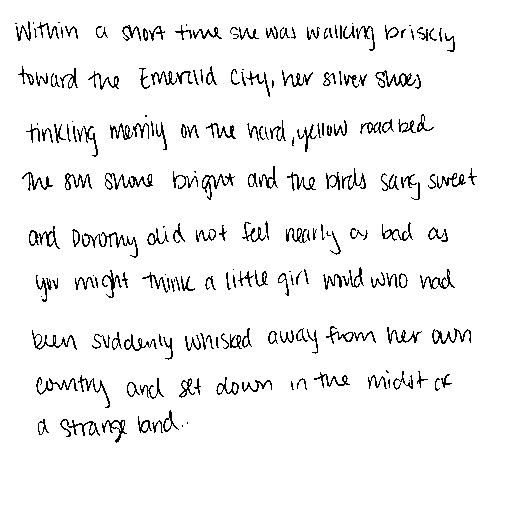 Within a short time she was walking briskly
toward the Emerald City, her silver shoes
tinkling merrily on the hard, yellow roadbed
The sun shone bright and the birds sang sweet
and Dorothy did not feel nearly as bad as
you might think a little girl would who had
been suddenly whisked away from her own
country and set down in the midst of
a strange land..